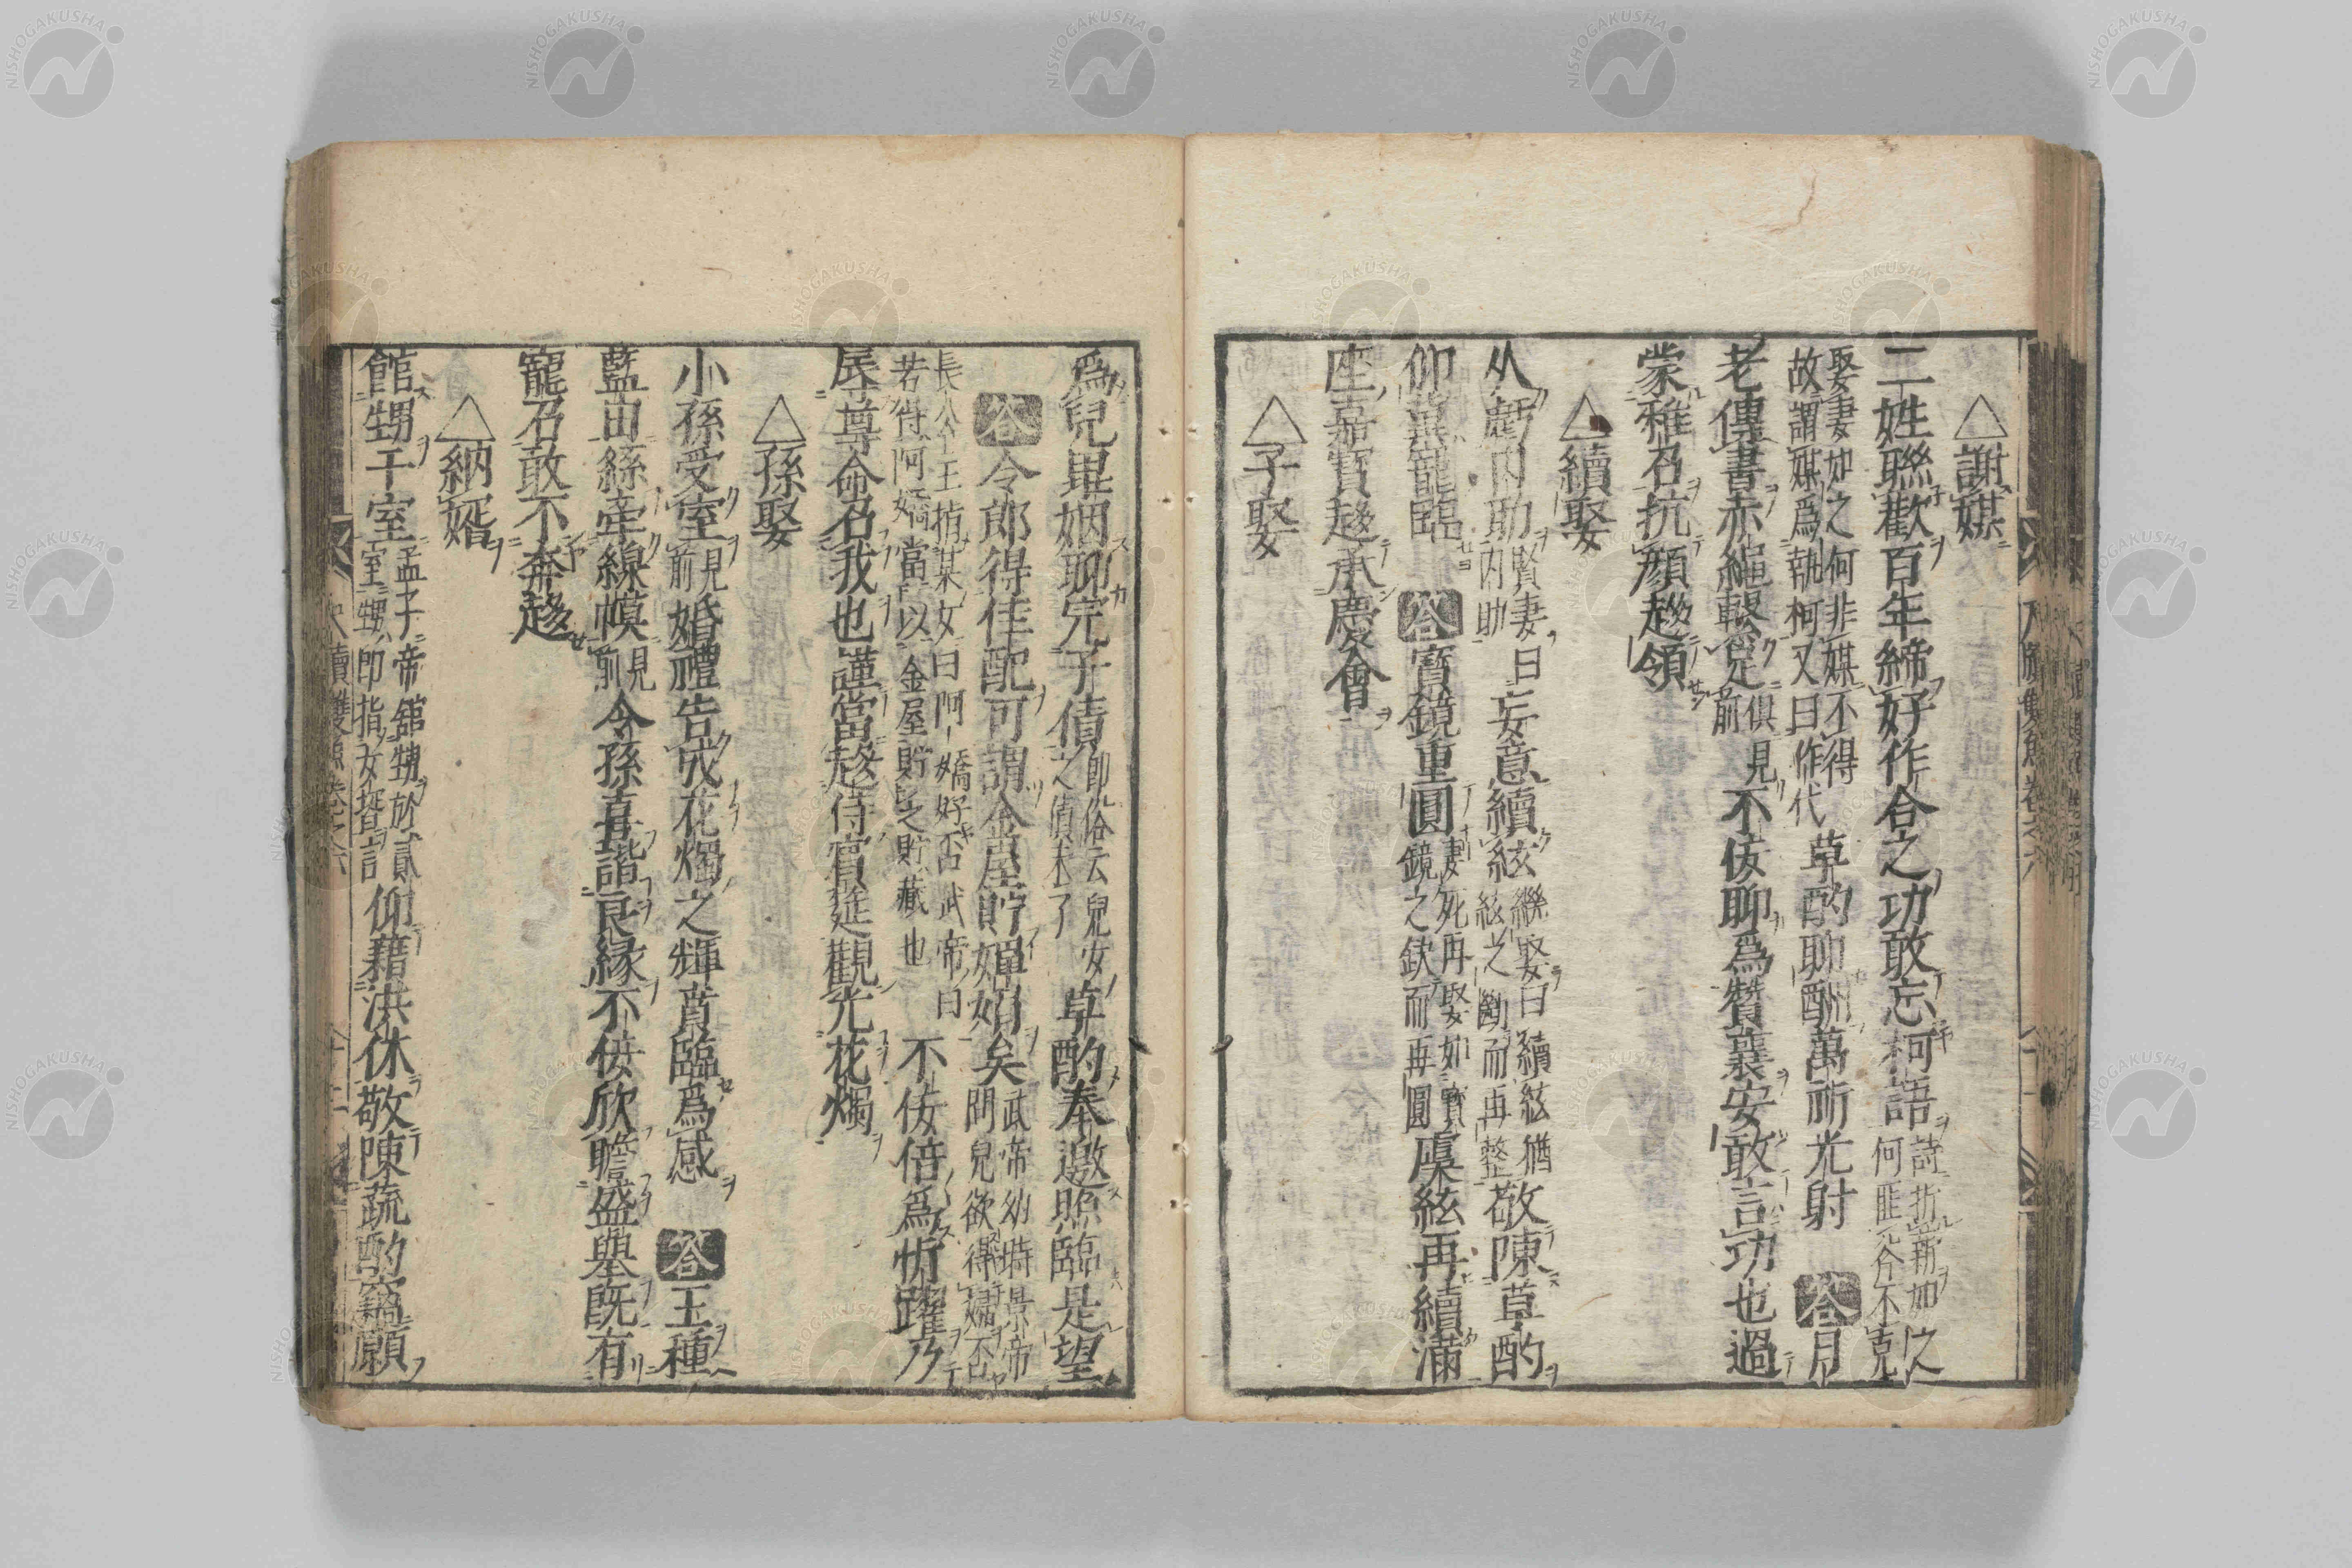 △謝媒
二姓聯歡百年締好作合之功敢忘柯語詩折薪如之何匪斧不克
娶妻如之何非媒不得故謂媒爲執柯又曰作代草酌聊酬萬祈光射 答月
老傳書赤繩繫足俱見前不佞聊爲贊襄安敢言功也過
蒙雅召抗顔趍領
△續娶
从虧内助賢妻曰内助妄意續絃繼娶曰續絃猶絃之斷而再整敬陳草酌
仰冀寵臨 答寳鏡重圓妻死再娶如寳鏡之鈌而再圓虞絃再續滿
座嘉賓趍承慶會
△子娶
爲兒畢姻聊完子債即俗云兒女之債未了卓酌奉邀照臨是望
答令郎得佳配可謂金屋貯嬋娟矣武帝幼時景帝問兒欲得婦否
長公主指某女曰阿嬌好否武帝曰若得阿嬌當以金屋貯之貯藏也不佞倍爲忻躍乃
辱尊命召我也謹當趍侍賓筵觀光花燭
△孫娶
小孫受室見前婚禮告成花燭之輝賁臨爲感 答玉種
藍田絲牽線幙見前令孫喜諧良縁不佞欣瞻盛舉既有
寵召敢不奔趍
△納婿
館甥于室孟子帝舘甥於貳室甥即指女壻言仰藉洪休敬陳蔬酌竊願